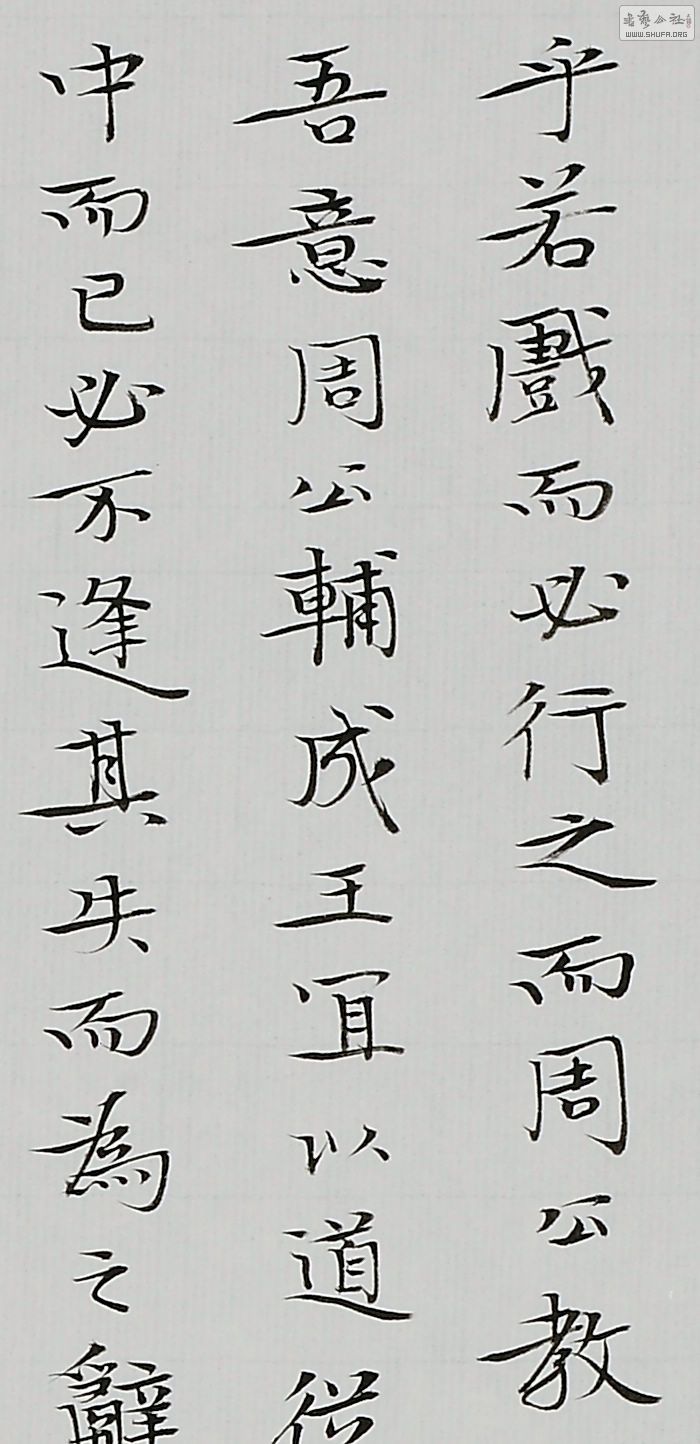 乎若戲而必行之而周公教
吾意周公輔成王宜以道從
中而已必不逢其失而為之辭
WWW.SHUFA.ORG